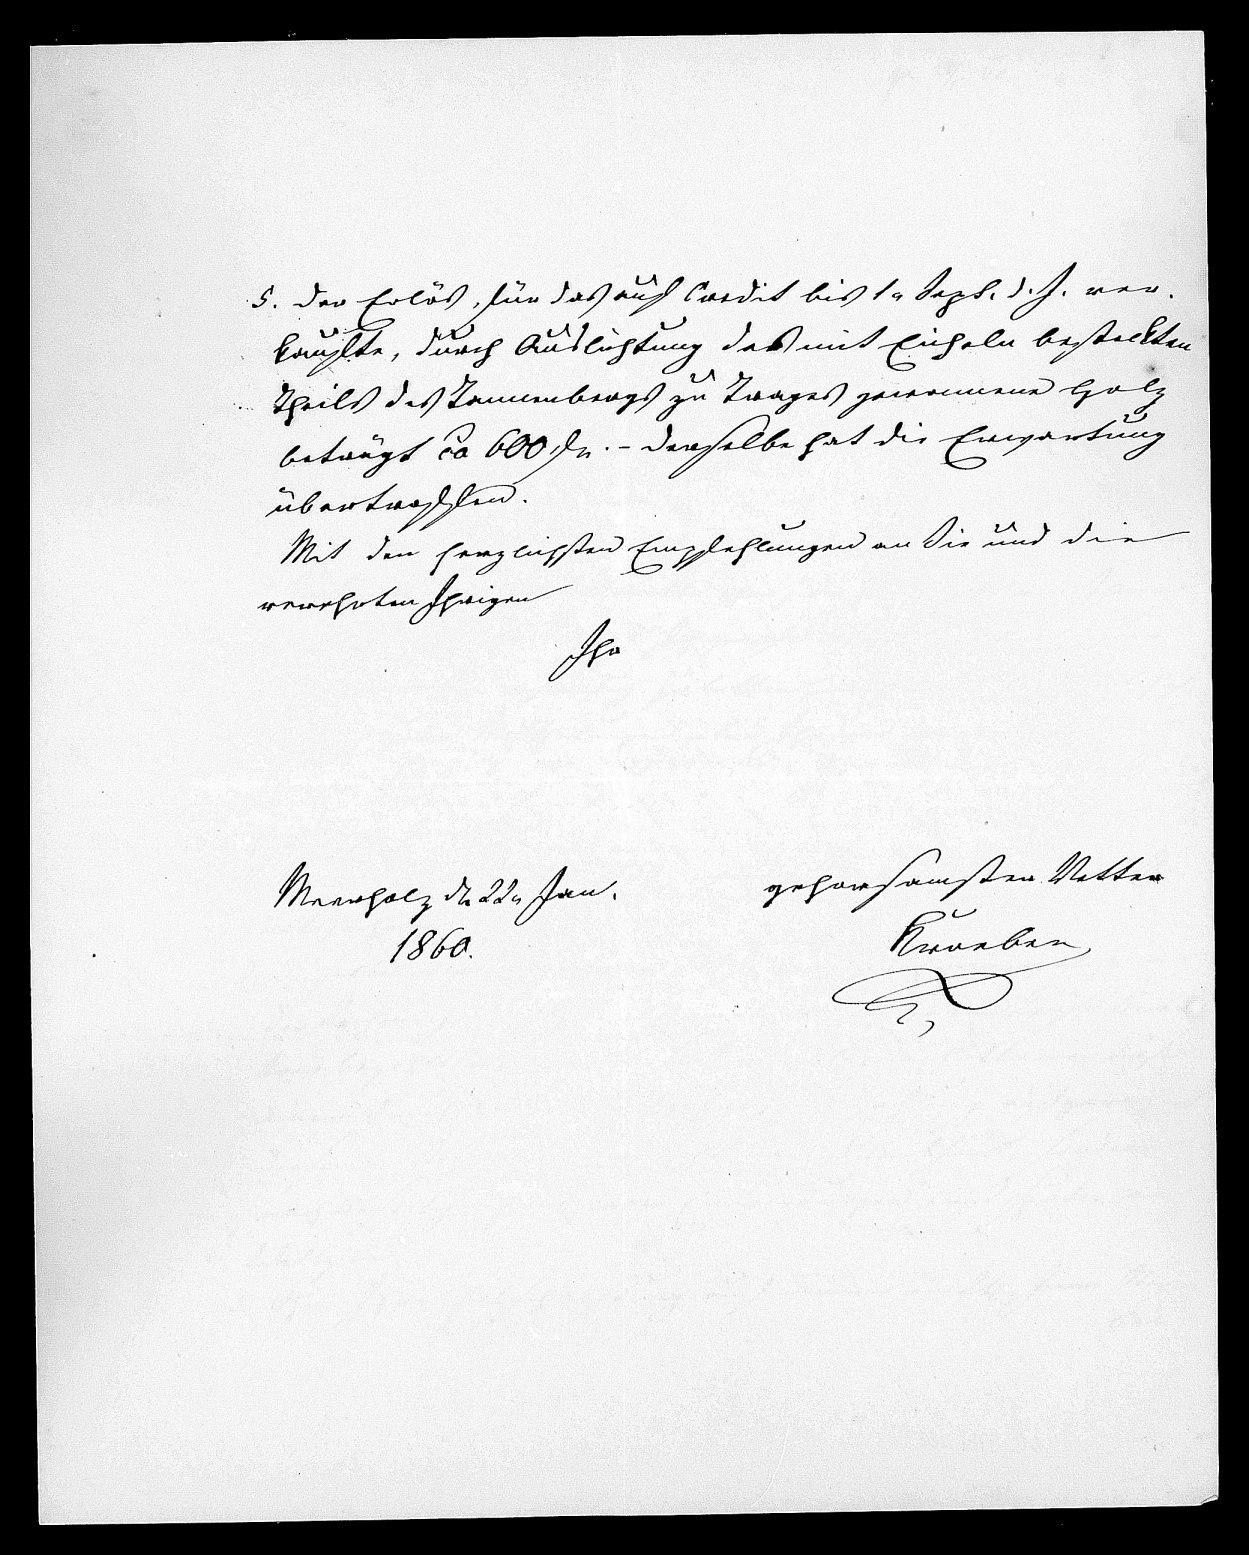 5. der Erlös, für das auf Credit bis 1n Sept. d. J. ver-
kaufte, durch Auslichtung des mit Eicheln besteckten
Theils des Tannenbergs zu Trages gewonnene Holz
beträgt ca 600 fl. - derselbe hat die Erwartung
übertroffen.
Mit den herzlichsten Empfehlungen an Sie und die
verehrten Ihrigen
Ihr
gehorsamster Vetter
Meerholz d 22n Jan.
1860.